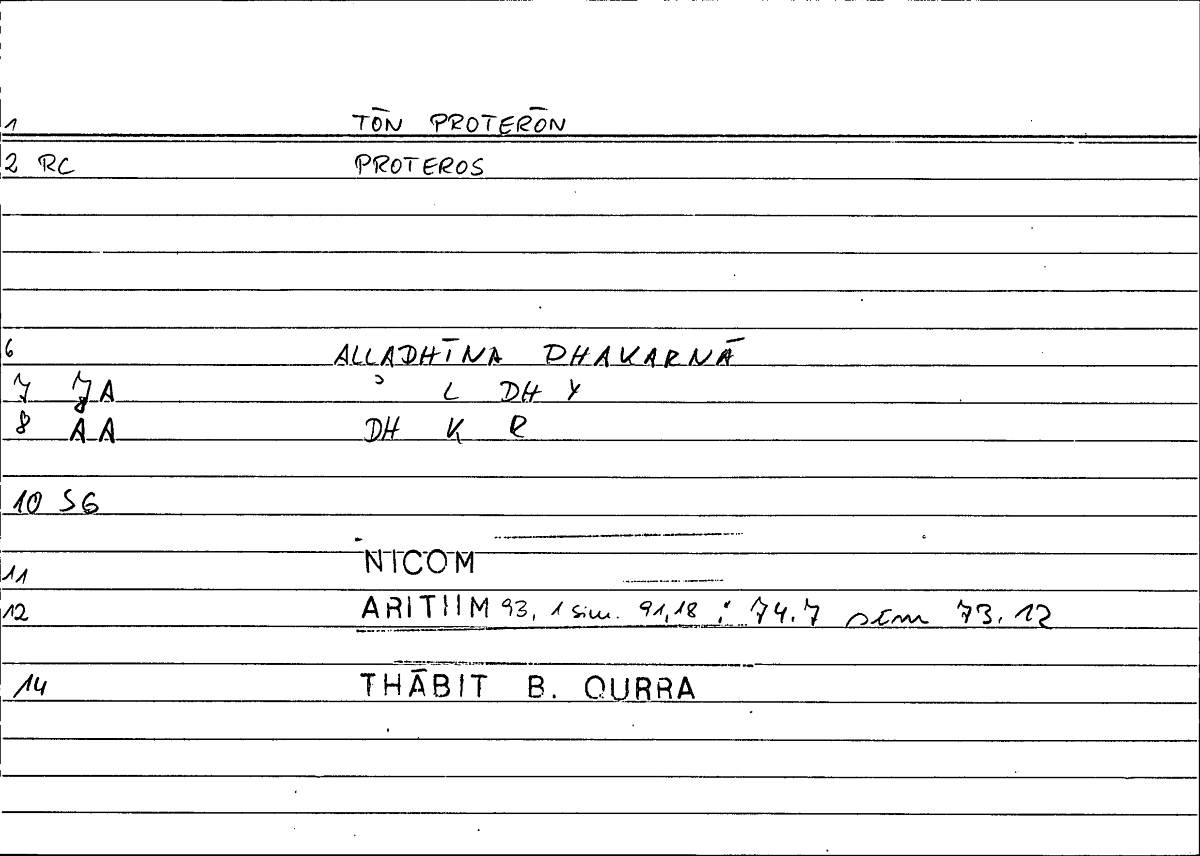 1 TŌN PROTERŌN
2 RC PROTEROS
6 ALLADHĪNA DHAKARNĀ
7 JA ʾ L DH Y
8 AA DH K R
10 SG
11 NICOM
12 ARITIIM 93, 1 sim. 91,18 ; 74.7 sim 73.12
14 THĀBIT B. QURRA